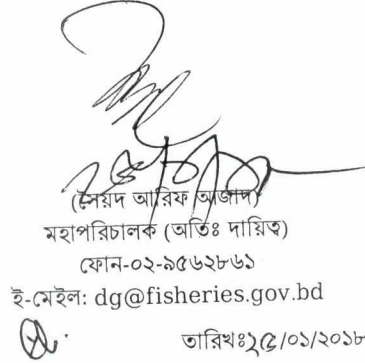 (সৈয়দ আরিফ আজাদ)
মহাপরিচালক (অতিঃ দায়িত্ব)
ফোন-০২-৯৫৬২৮৬১
ই-মেইল: dg@fisheries.gov.bd
তারিখঃ২৫/০১/২০১৮